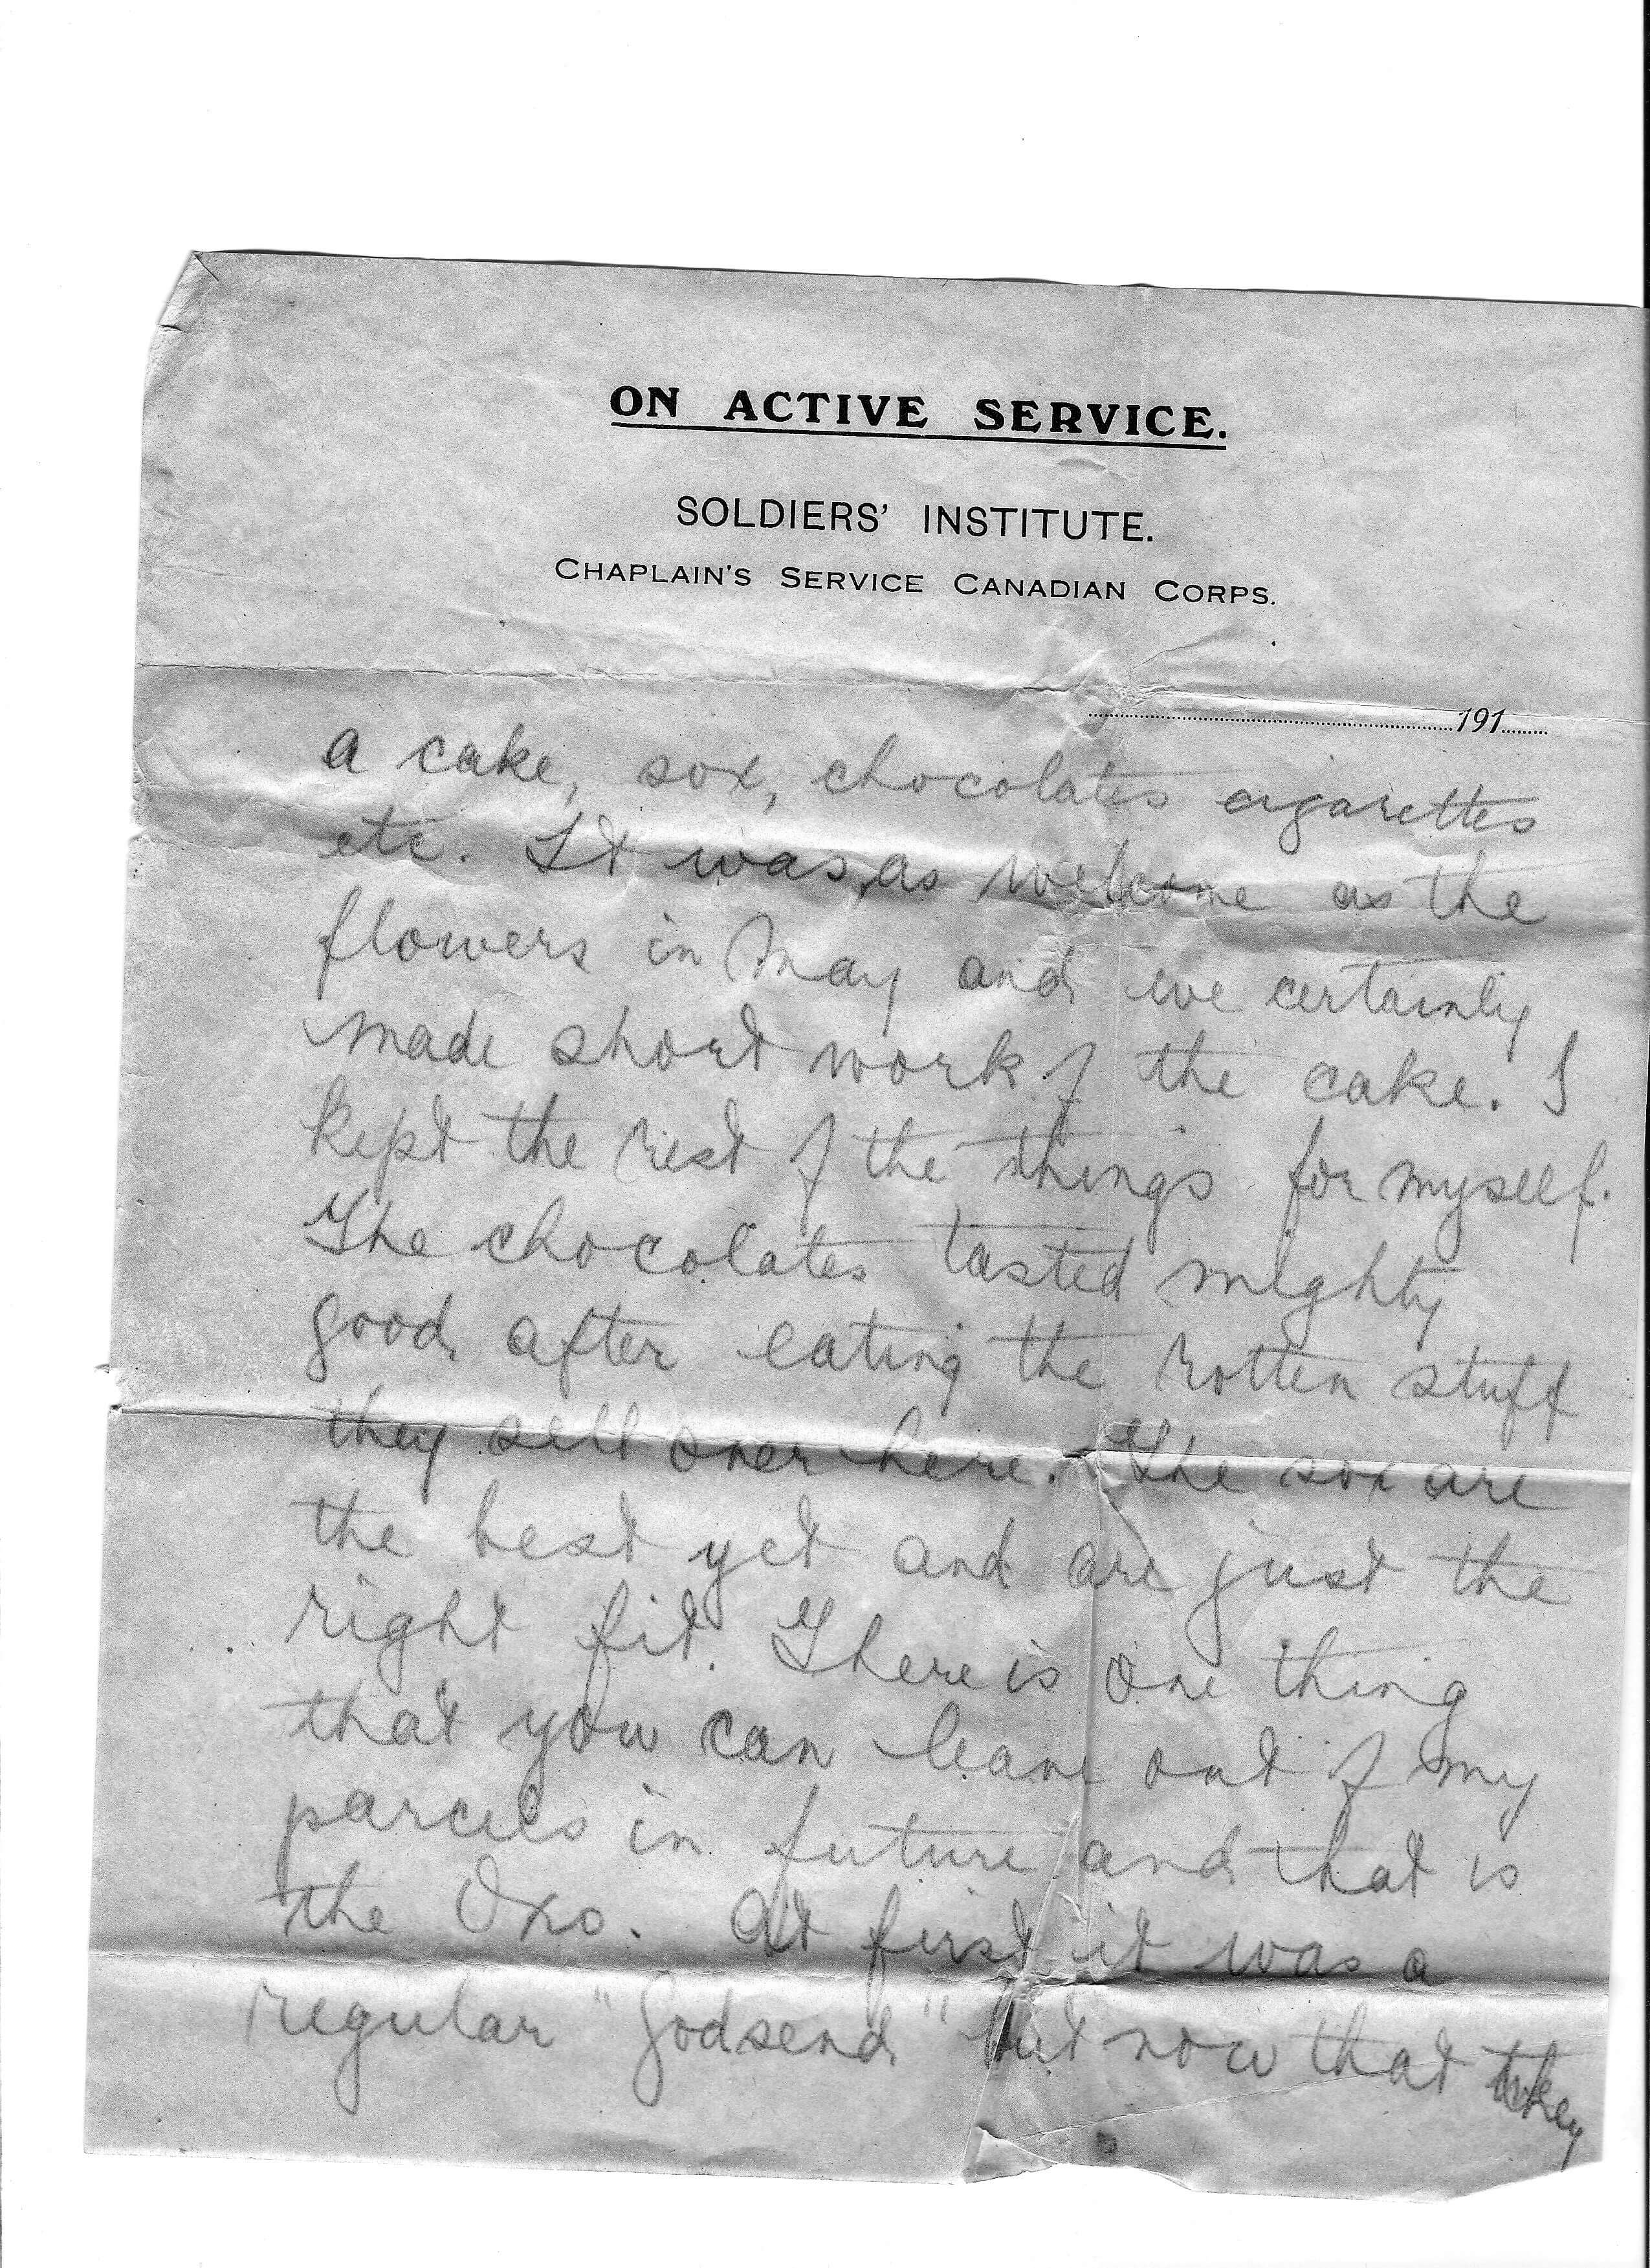 ON ACTIVE SERVICE.
SOLDIERS' INSTITUTE.
CHAPLAIN'S SERVICE CANADIAN CORPS.
191
a cake, sox, chocolates cigarettes
etc. It was as welcome as the
flowers in May and we certainly
made short work of the cake. I
kept the rest of the things for myself.
The chocolates tasted mighty
good after eating the rotten stuff
they sell over here. The sox are
the best yet and are just the
right fit. There is one thing
that you can leave out of my
parcels in future and that is
the Oxo. At first it was a
regular "Godsend" but now that they